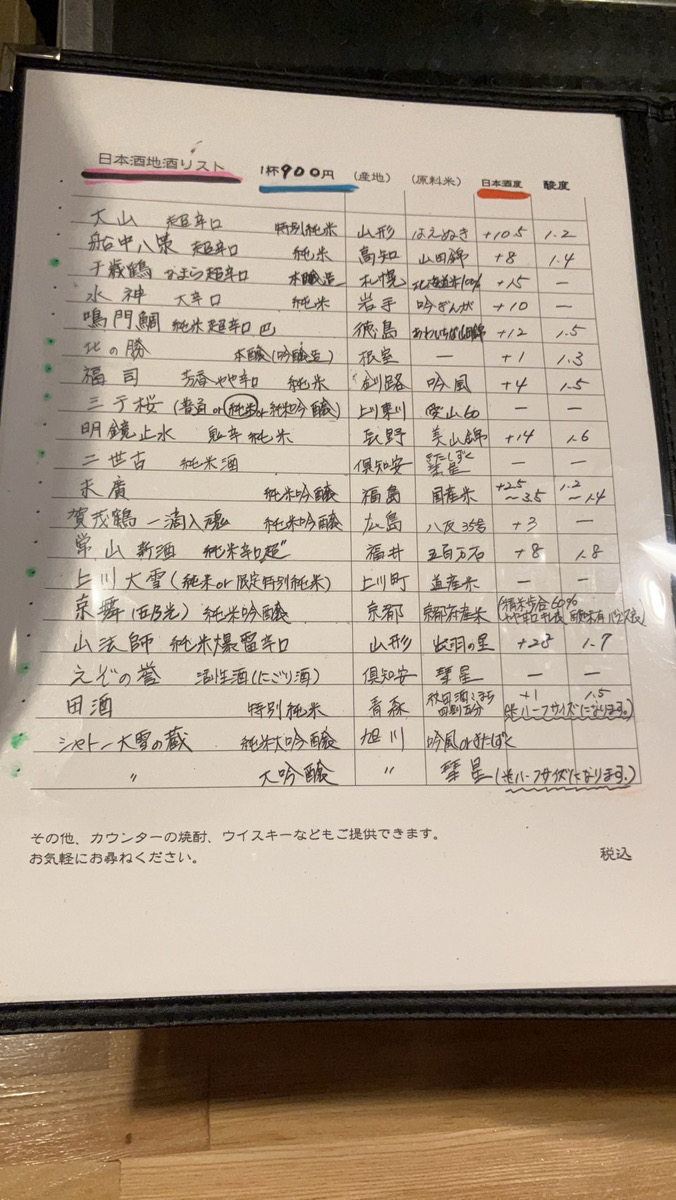 日本酒地酒リスト 1杯900円 (産地) (原料米) 日本酒度 酸度
大山 超辛口 特別純米 山形 はえぬき +10.5 1.2
船中八策 超辛口 純米 高知 山田錦 +8 1.4
千歳鶴 なまら超辛口 本醸造 札幌 北海道米100% +15 —
水神 大辛口 純米 岩手 吟ぎんが +10 —
鳴門鯛 純米超辛口 巴 徳島 あわいちば山田錦 +12 1.5
北の勝 本醸(吟醸造) 根室 — +1 1.3
福司 芳香やや辛口 純米 釧路 吟風 +4 1.5
三千桜 (普通or純米or純米吟醸) 上川東川 愛山60 — —
明鏡止水 鬼辛純米 長野 美山錦 +14 1.6
二世古 純米酒 倶知安 きたしずく 彗星 — —
末廣 純米吟醸 福島 国産米 +2.5~3.5 1.2~1.4
賀茂鶴 一滴入魂 純米吟醸 広島 八反35号 +3 —
常山 新酒 純米辛口"超" 福井 五百万石 +8 1.8
上川大雪(純米or限定特別純米) 上川町 道産米 — —
京舞 純米吟醸 京都 京都府産米 (精米歩合60%
山法師 純米爆雷辛口 山形 出羽の里 +28 1.7
えぞの誉 活性酒(にごり酒) 倶知安 彗星 — —
田酒 特別純米 青森 秋田酒こまち +1 1.5 (※ハーフサイズになります。)
シャトー大雪の蔵 純米大吟醸 旭川 吟風orきたしずく
〃 大吟醸 〃 彗星 (※ハーフサイズになります。)
その他、カウンターの焼酎、ウイスキーなどもご提供できます。
お気軽にお尋ねください。 税込